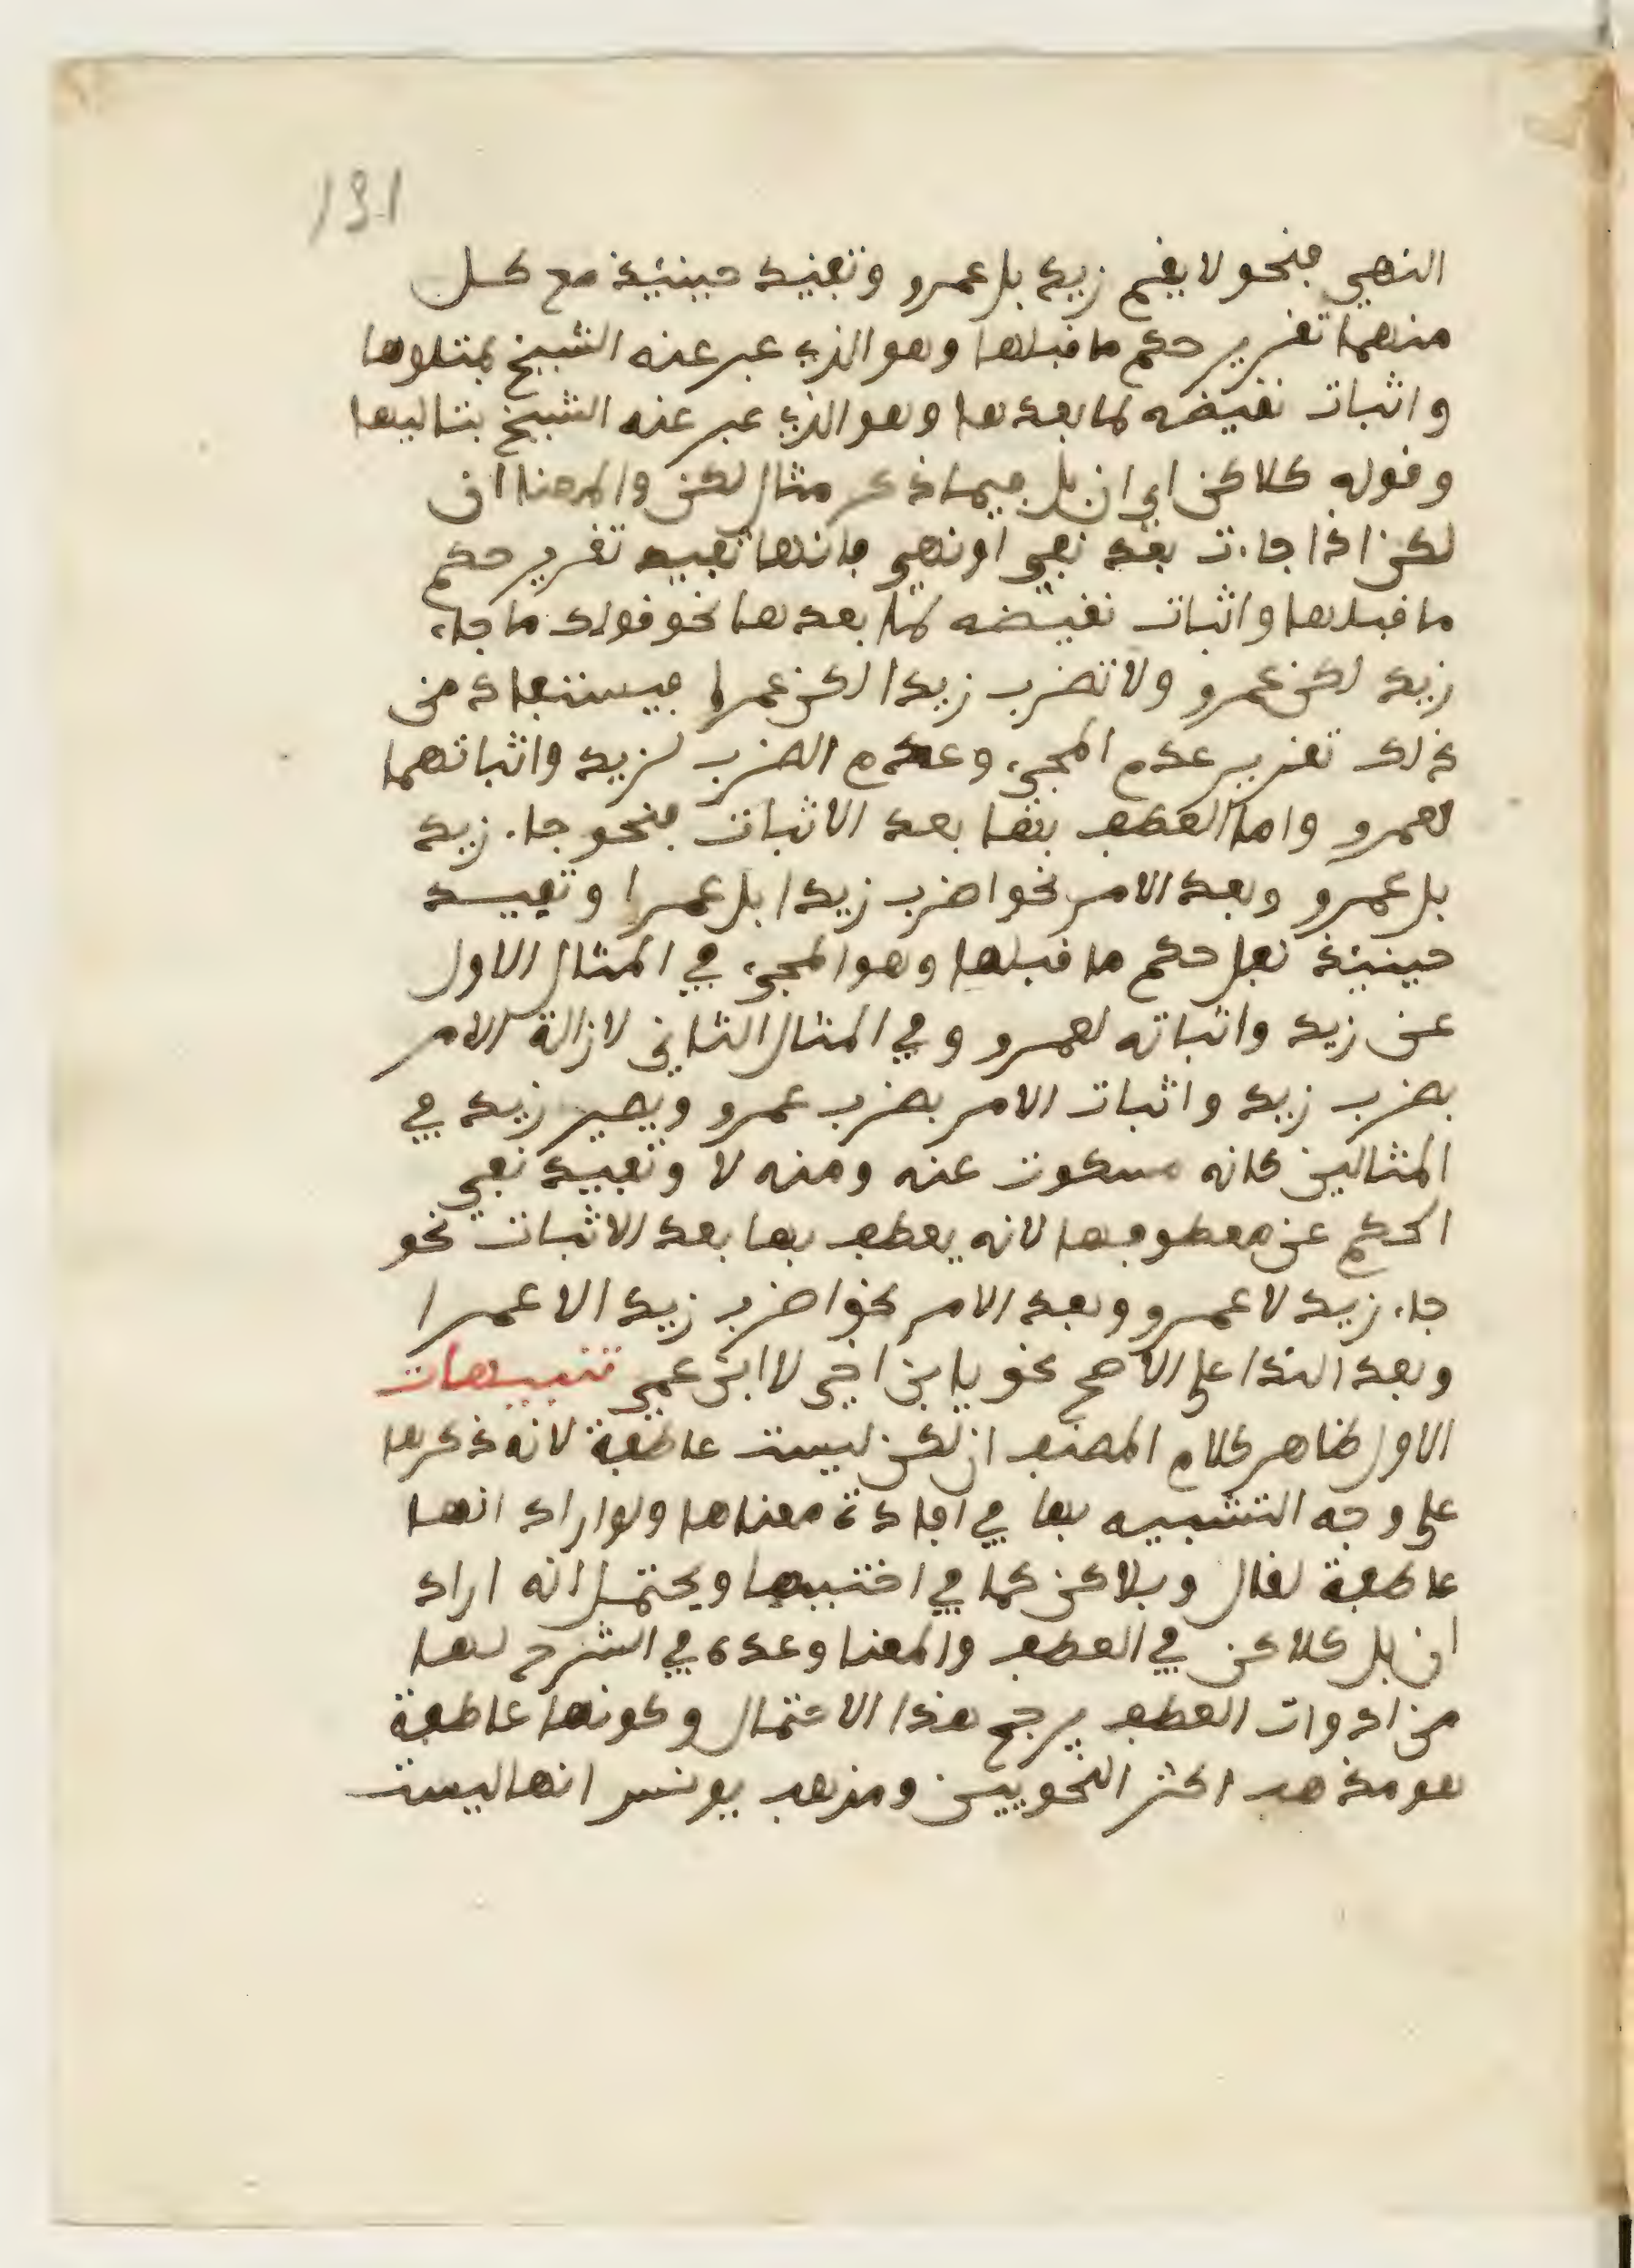 131
النهي فنحو لا يقم زيد بل عمرو وتفيد حينئذ مع كل
منهما تقرير حكم ما قبلها وهو الذي عبر عنه الشيخ بمتلوها
واثبات نقيضه لما بعدها وهو الذي عبر عنه الشيخ بتاليها
وقوله كلاكن اي ان بل فيما ذكر مثل لكن والمعنا ان
لكن اذا جاءت بعد نفي او نهي فانها تفيد تقرير حكم
ما قبلها واثبات نقيضه لما بعدها نحو قولك ما جاء
زيد لكن عمرو ولا تضرب زيدا لكن عمرا فيستفاد من
ذلك تقرير عدم المجيء وعدم الضرب لزيد واثباتهما
لعمرو واما العطف بها بعد الاثبات فنحو جاء زيد
بل عمرو وبعد الامر نحو اضرب زيدا بل عمرا وتفيد
حينئذ نقل حكم ما قبلها وهو المجيء في المثال الاول
عن زيد واثباته لعمرو وفي المثال الثاني لازالة الامر
بضرب زيد واثبات الامر بضرب عمرو ويصير زيد في
المثالين كانه مسكوت عنه ومنه لا وتفيد نفي
الحكم عن معطوفها لانه يعطف بها بعد الاثبات نحو
جاء زيد لا عمرو وبعد الامر نحو اضرب زيد الا عمرا
وبعد الندا على الاصح نحو يا بن اخي لا ابن عمي تنبيهات
الاول ظاهر كلام المصنف ان لكن ليست عاطفة لانه ذكرها
على وجه التشبيه بها في افادة معناها ولو اراد انها
عاطفة لقال وبلاكن كما في اختيها ويحتمل انه اراد
ان بل كلاكن في العطف والمعنا وعده في الشرح لها
من ادوات العطف يرجح هذا الاحتمال وكونها عاطفة
هو مذهب اكثر النحويين ومذهب يونس انها ليست